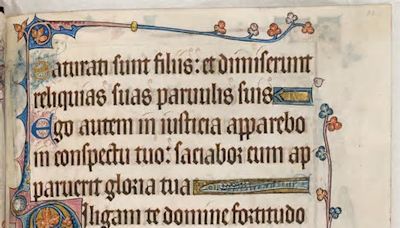 Saturati sunt filiis: et dimiserunt
reliquias suas paruulis suis
Ego autem in iusticia apparebo
in conspectu tuo: saciabor cum ap
paruerit gloria tua
Diligam te domine fortitudo